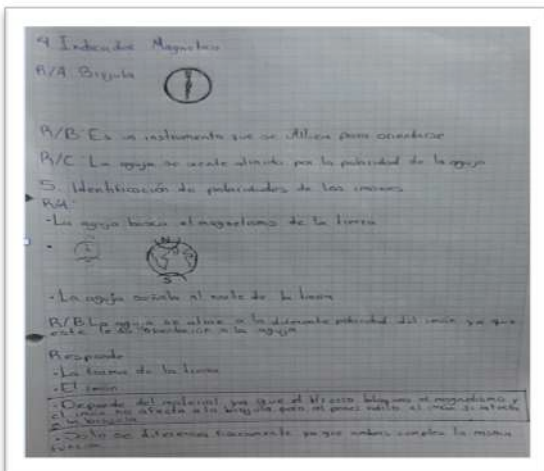 4 Indicador Magnetico
R/A Brujula
R/B: Es un instrumento que se utiliza para orientarse
R/C La aguja se siente atraida por la polaridad de la aguja
5. Identificación de polaridades de los imanes
R/A:
- La aguja busca el magnetismo de la tierra
N
S
- La aguja señala al norte de la tierra
R/B La aguja se atrae a la diferente polaridad del imán ya que
este le la a la aguja
Responde
- La de la tierra
- El imán
- Depende del material, ya que el bloquea el magnetismo y
el imán no afecta a la brujula pero el si afecta
a la brujula
- Solo se diferencia fisicamente ya que ambas cumplen la misma
función